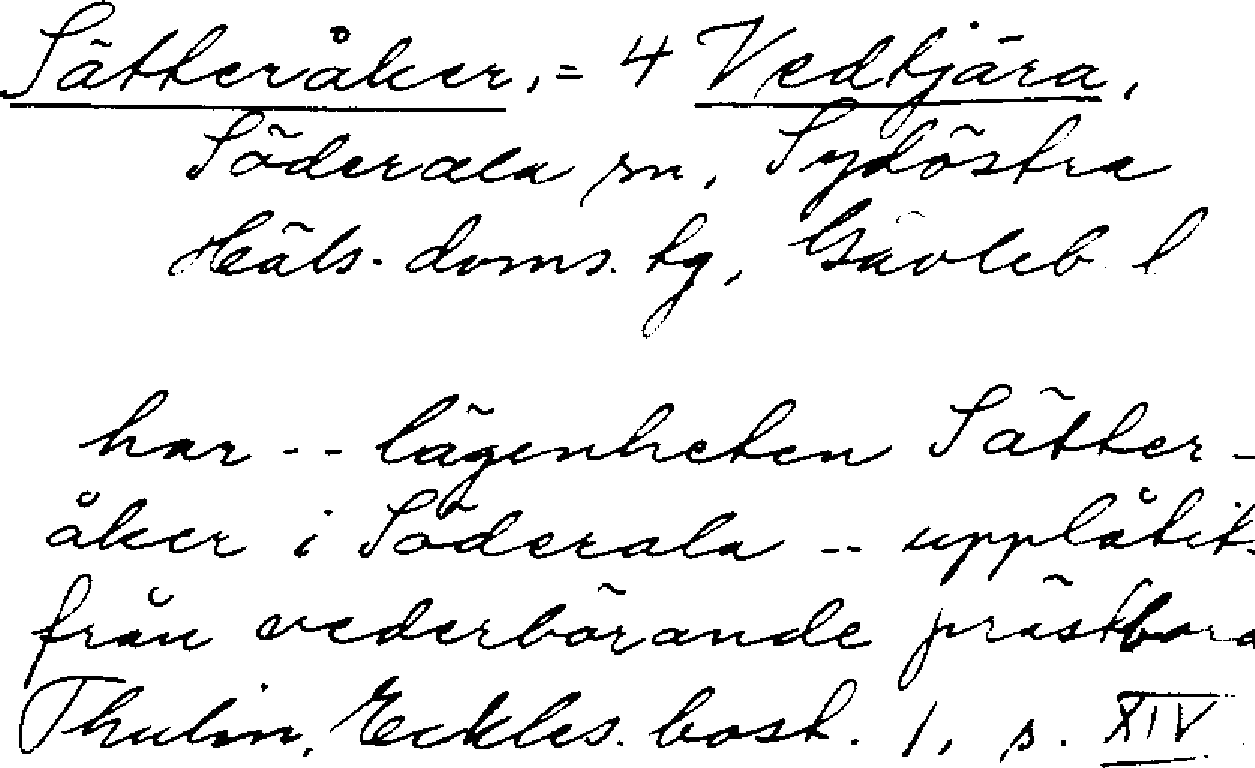 Sätteråker, = 4 Vedtjära,
Söderala sn, Sydöstra
Häls. doms. tg, Gävleb l
har -- lägenheten Sätter-
åker i Söderala -- upplåtits
från vederbörande prästbord
Thulin, Eckles. bost. 1, s. XIV